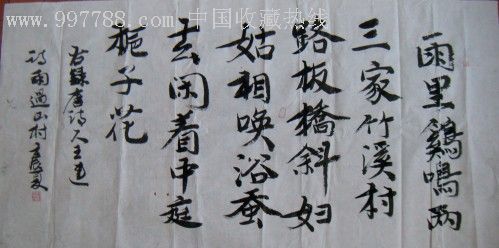 www.997788.com 中国收藏热线
雨里鷄鳴两
三家竹溪村
路板橋斜妇
姑相唤浴蚕
去闲着中庭
栀子花
右録唐诗人王建
诗雨過山村